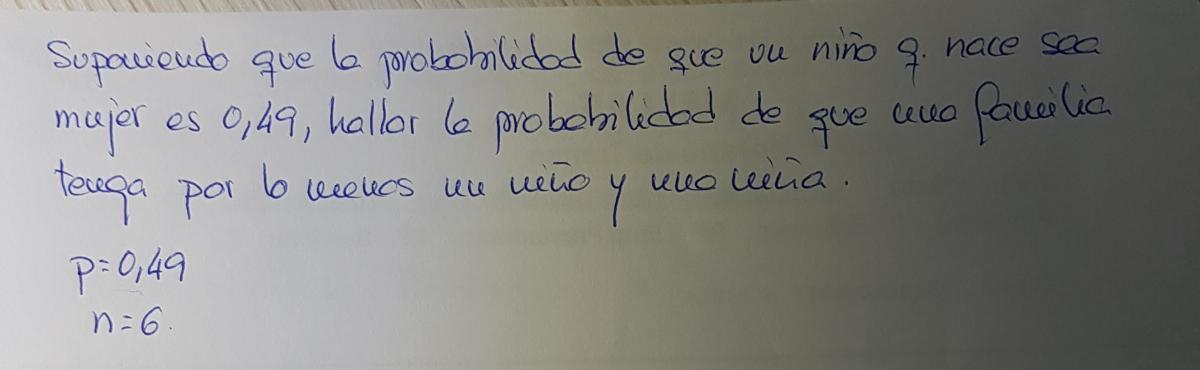 Suponiendo que la probabilidad de que un niño q. nace sea
mujer es 0,49, hallar la probabilidad de que una familia
tenga por lo menos un niño y una niña.
p=0,49
n=6.